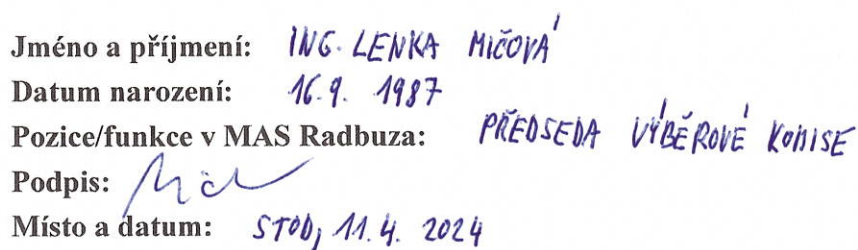 Jméno a příjmení: ING. LENKA MIČOVÁ
Datum narození: 16.9. 1987
Pozice/funkce v MAS Radbuza: PŘEDSEDA VÝBĚROVÉ KOMISE
Podpis:
Místo a datum: STOD, 11.4. 2024